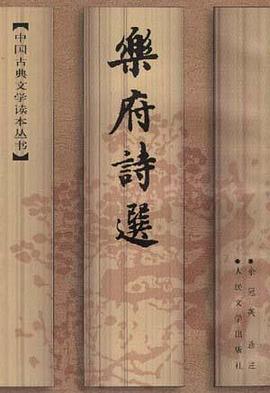 【中国古典文学读本丛书】
樂府詩選
●余冠英 选注
●人民文学出版社